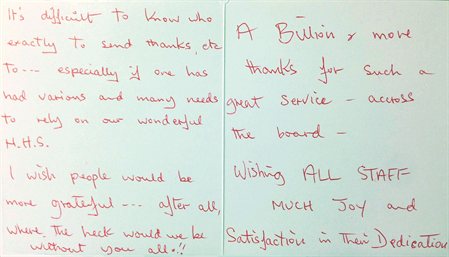 It's difficult to know who
exactly to send thanks, etc
to --- especially if one has
had various and many needs
to rely on our wonderful
N.H.S.
I wish people would be
more grateful --- after all,
where the heck would we be
without you all !!
A Billion & more
thanks for such a
great service - across
the board -
Wishing ALL STAFF
MUCH JOY and
Satisfaction in Their Dedication